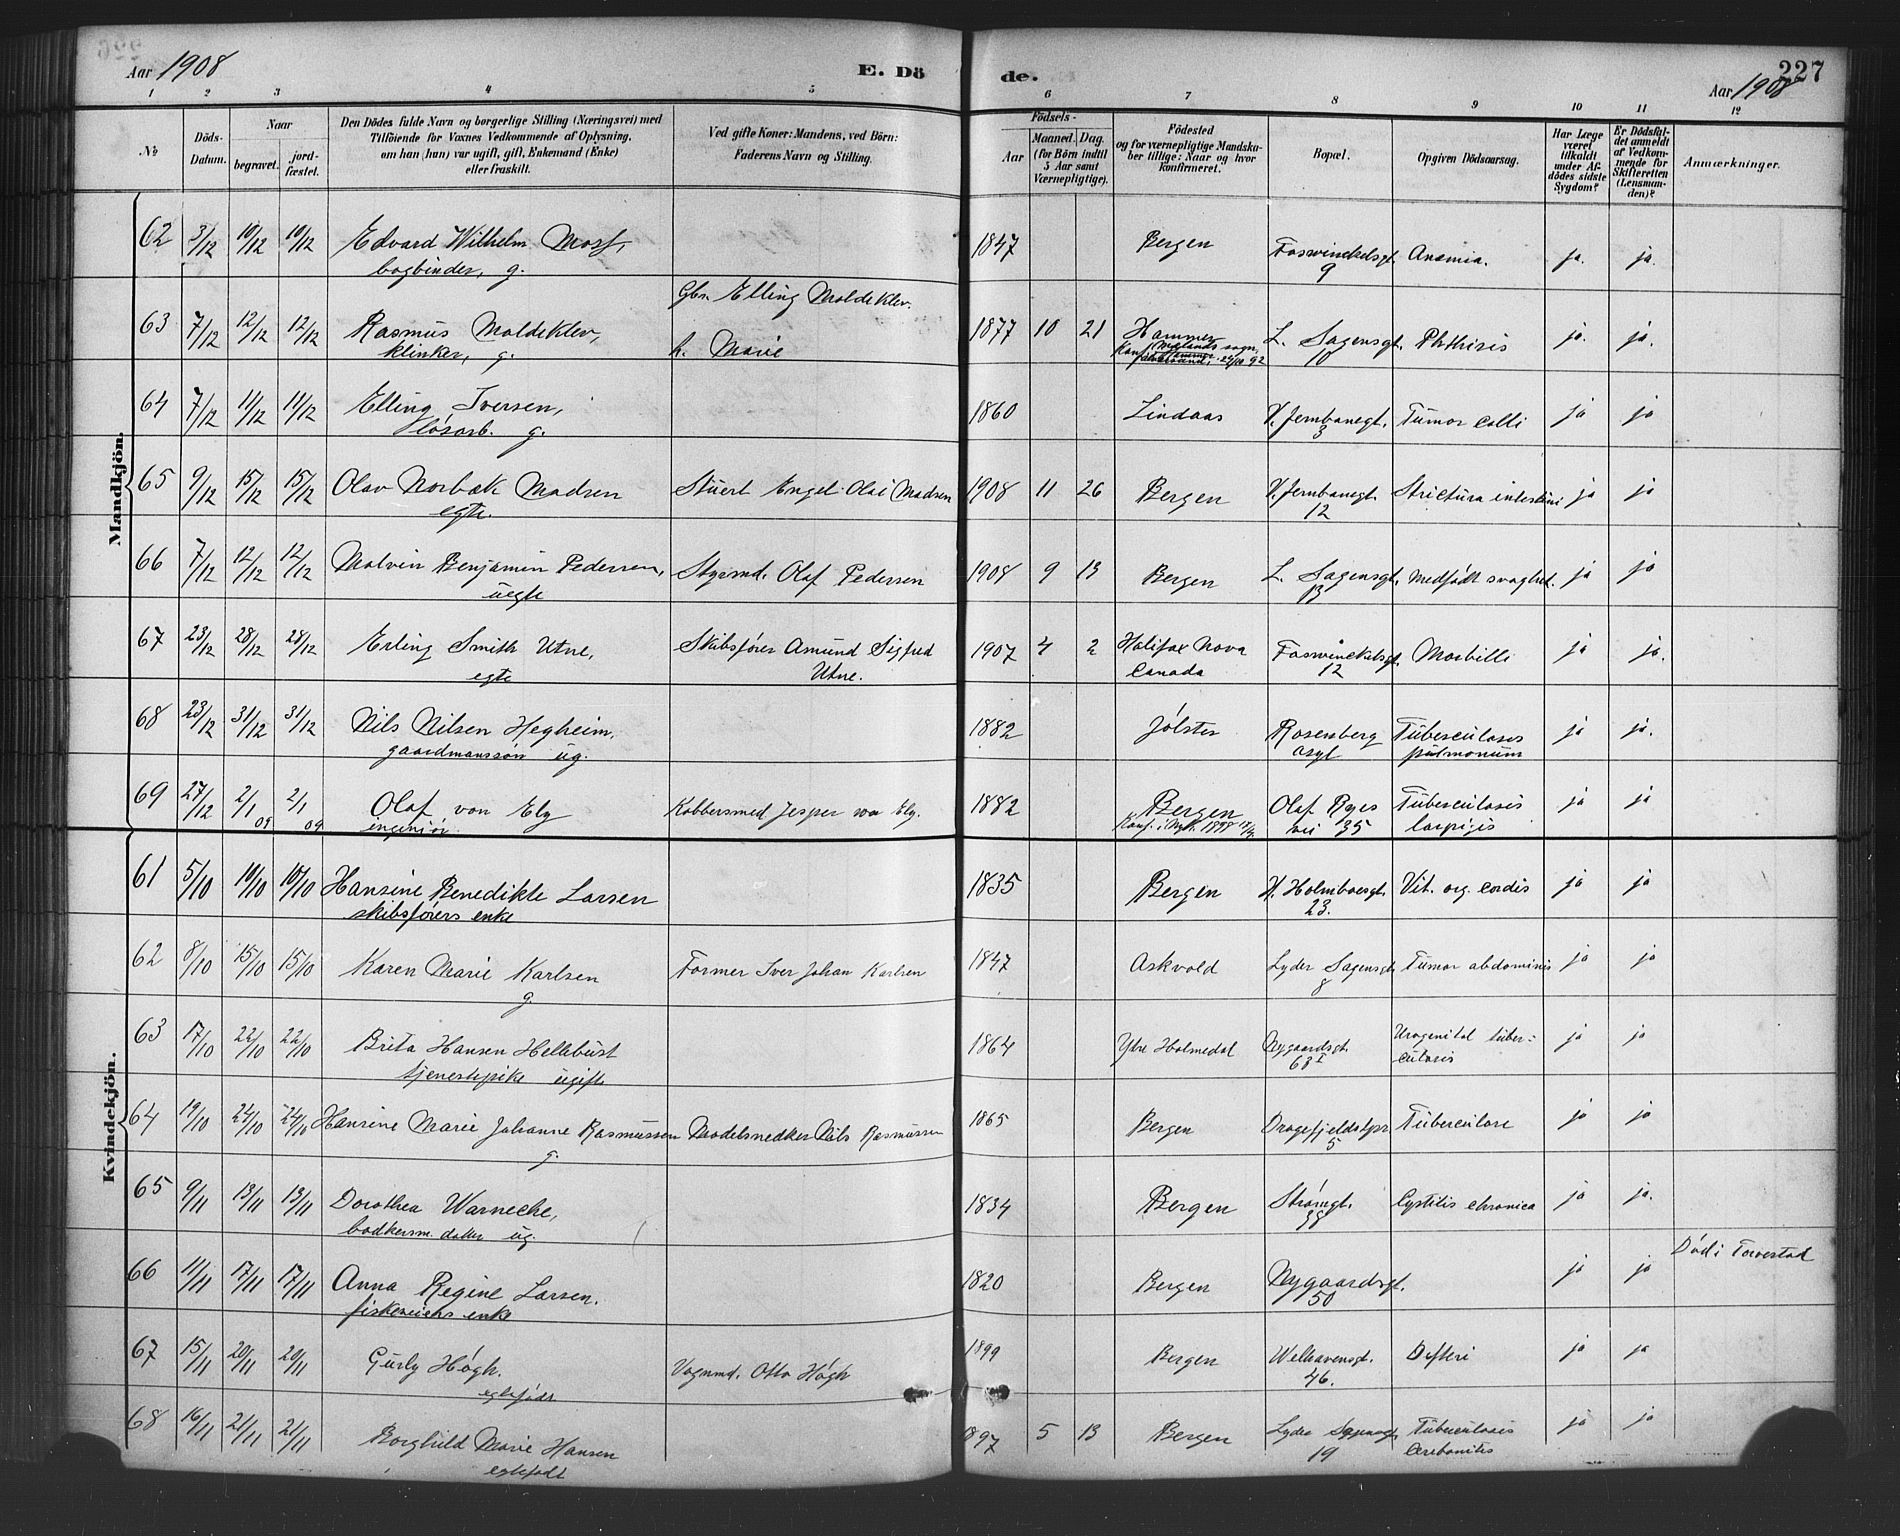 Aar 1908 E. Dö
de. 227
Aar 1908
1 2 3 4 5 6 7 8 9 10 11 12
№
Döds-Datum.
Naar
begravet. jordfæstet.
Den Dödes fulde Navn og borgerlige Stilling (Næringsvei) med
Tilföiende for Voxnes Vedkommende af Oplysning,
om han (hun) var ugift, gift, Enkemand (Enke)
eller fraskilt.
Ved gifte Koner: Mandens, ved Börn:
Faderens Navn og Stilling.
Födsels-
Aar Maaned. Dag.
(for Börn indtil
5 Aar samt
Værnepligtige).
Födested
og for værnepligtige Mandskaber tillige: Naar og hvor
konfirmeret.
Bopæl.
Opgiven Dödsaarsag.
Har Læge
været
tilkaldt
under Afdödes sidste
Sygdom?
Er Dödsfaldet anmeldt
af Vedkommende for
Skifteretten
(Lensmanden)?
Anmærkninger.
Mandkjön.
62 3/12 10/12 10/12 Edvard Wilhelm 1847 Bergen Foswinckelsgt. Anæmia. ja. ja.
bogbinder, g. 9
Gbr. Elling Moldeklev.
63 7/12 12/12 12/12 Rasmus Moldeklev, h. Marie 1877 10 21 Hammer L. Sagensgt. Phthisis ja. ja.
klinker, g. 10
64 7/12 11/12 11/12 Elling Iversen, 1860 Lindaas V. Jernbanegt. Tumor colli ja ja
løsarb. g. 3
65 9/12 15/12 15/12 Olav Norbæk Madsen Stuert Engel Olai Madsen 1908 11 26 Bergen V. Jernbanegt. Strictura intestini ja ja
egte. 12
66 7/12 12/12 12/12 Malvin Benjamin Pedersen, Styrmd. Olaf Pedersen 1908 9 13 Bergen L. Sagensgt. Medfødt svaghed. ja ja
uegte 13
67 23/12 28/12 28/12 Erling Smith Utne, Skibsfører Amund Sigfred 1907 4 2 Halifax Nova Foswinckelsgt. Morbilli ja ja.
egte Utne. Canada 12
68 23/12 31/12 31/12 Nils Nilsen Hegheim, 1882 Jølster Rosenberg Tuberculosis ja ja.
gaardmannssøn ug. asyl pulmonum
69 27/12 2/1 09 2/1 09 Olaf von Ely Kobbersmed Jesper von Ely. 1882 Bergen Olaf Ryes Tuberculosis ja ja
ingeniør. vei 35
Kvindekjön.
61 5/10 10/10 10/10 Hansine Benedikte Larsen 1835 Bergen H. Holmboesgt. Vit. org. cordis ja ja
skibsførers enke 23.
62 8/10 15/10 15/10 Karen Marie Karlsen Former Iver Johan Karlsen 1847 Askvold Lyder Sagensgt. Tumor abdominis ja ja
g. 8
63 17/10 22/10 22/10 Brita Hansen Hellebust 1864 Ytre Holmedal Nygaardsgt. Urogenital tuber- ja ja
tjenestepike ugift 63 I culosis
64 19/10 24/10 24/10 Hansine Marie Johanne Rasmussen Modelsnedker Nils Rasmussen 1865 Bergen Dragefjeldstpr. Tuberculose ja ja
g. 5
65 9/11 13/11 13/11 Dorothea Warneche, 1834 Bergen Strømgt. Cystitis chronica ja ja.
bødkerm. datter ug.
66 11/11 17/11 17/11 Anna Regine Larsen. 1820 Bergen Nygaardsgt. ja ja Død i Torvestad
enke 50
67 15/11 20/11 20/11 Gurly Høgh. Vognmd. Otto Høgh 1899 Bergen Welhavensgt. Difteri ja ja
egtefødt 46.
68 16/11 21/11 21/11 Borghild Marie Hansen 1897 5 13 Bergen Lyder Sagensgt. Tuberculosis ja ja
egtefødt 19